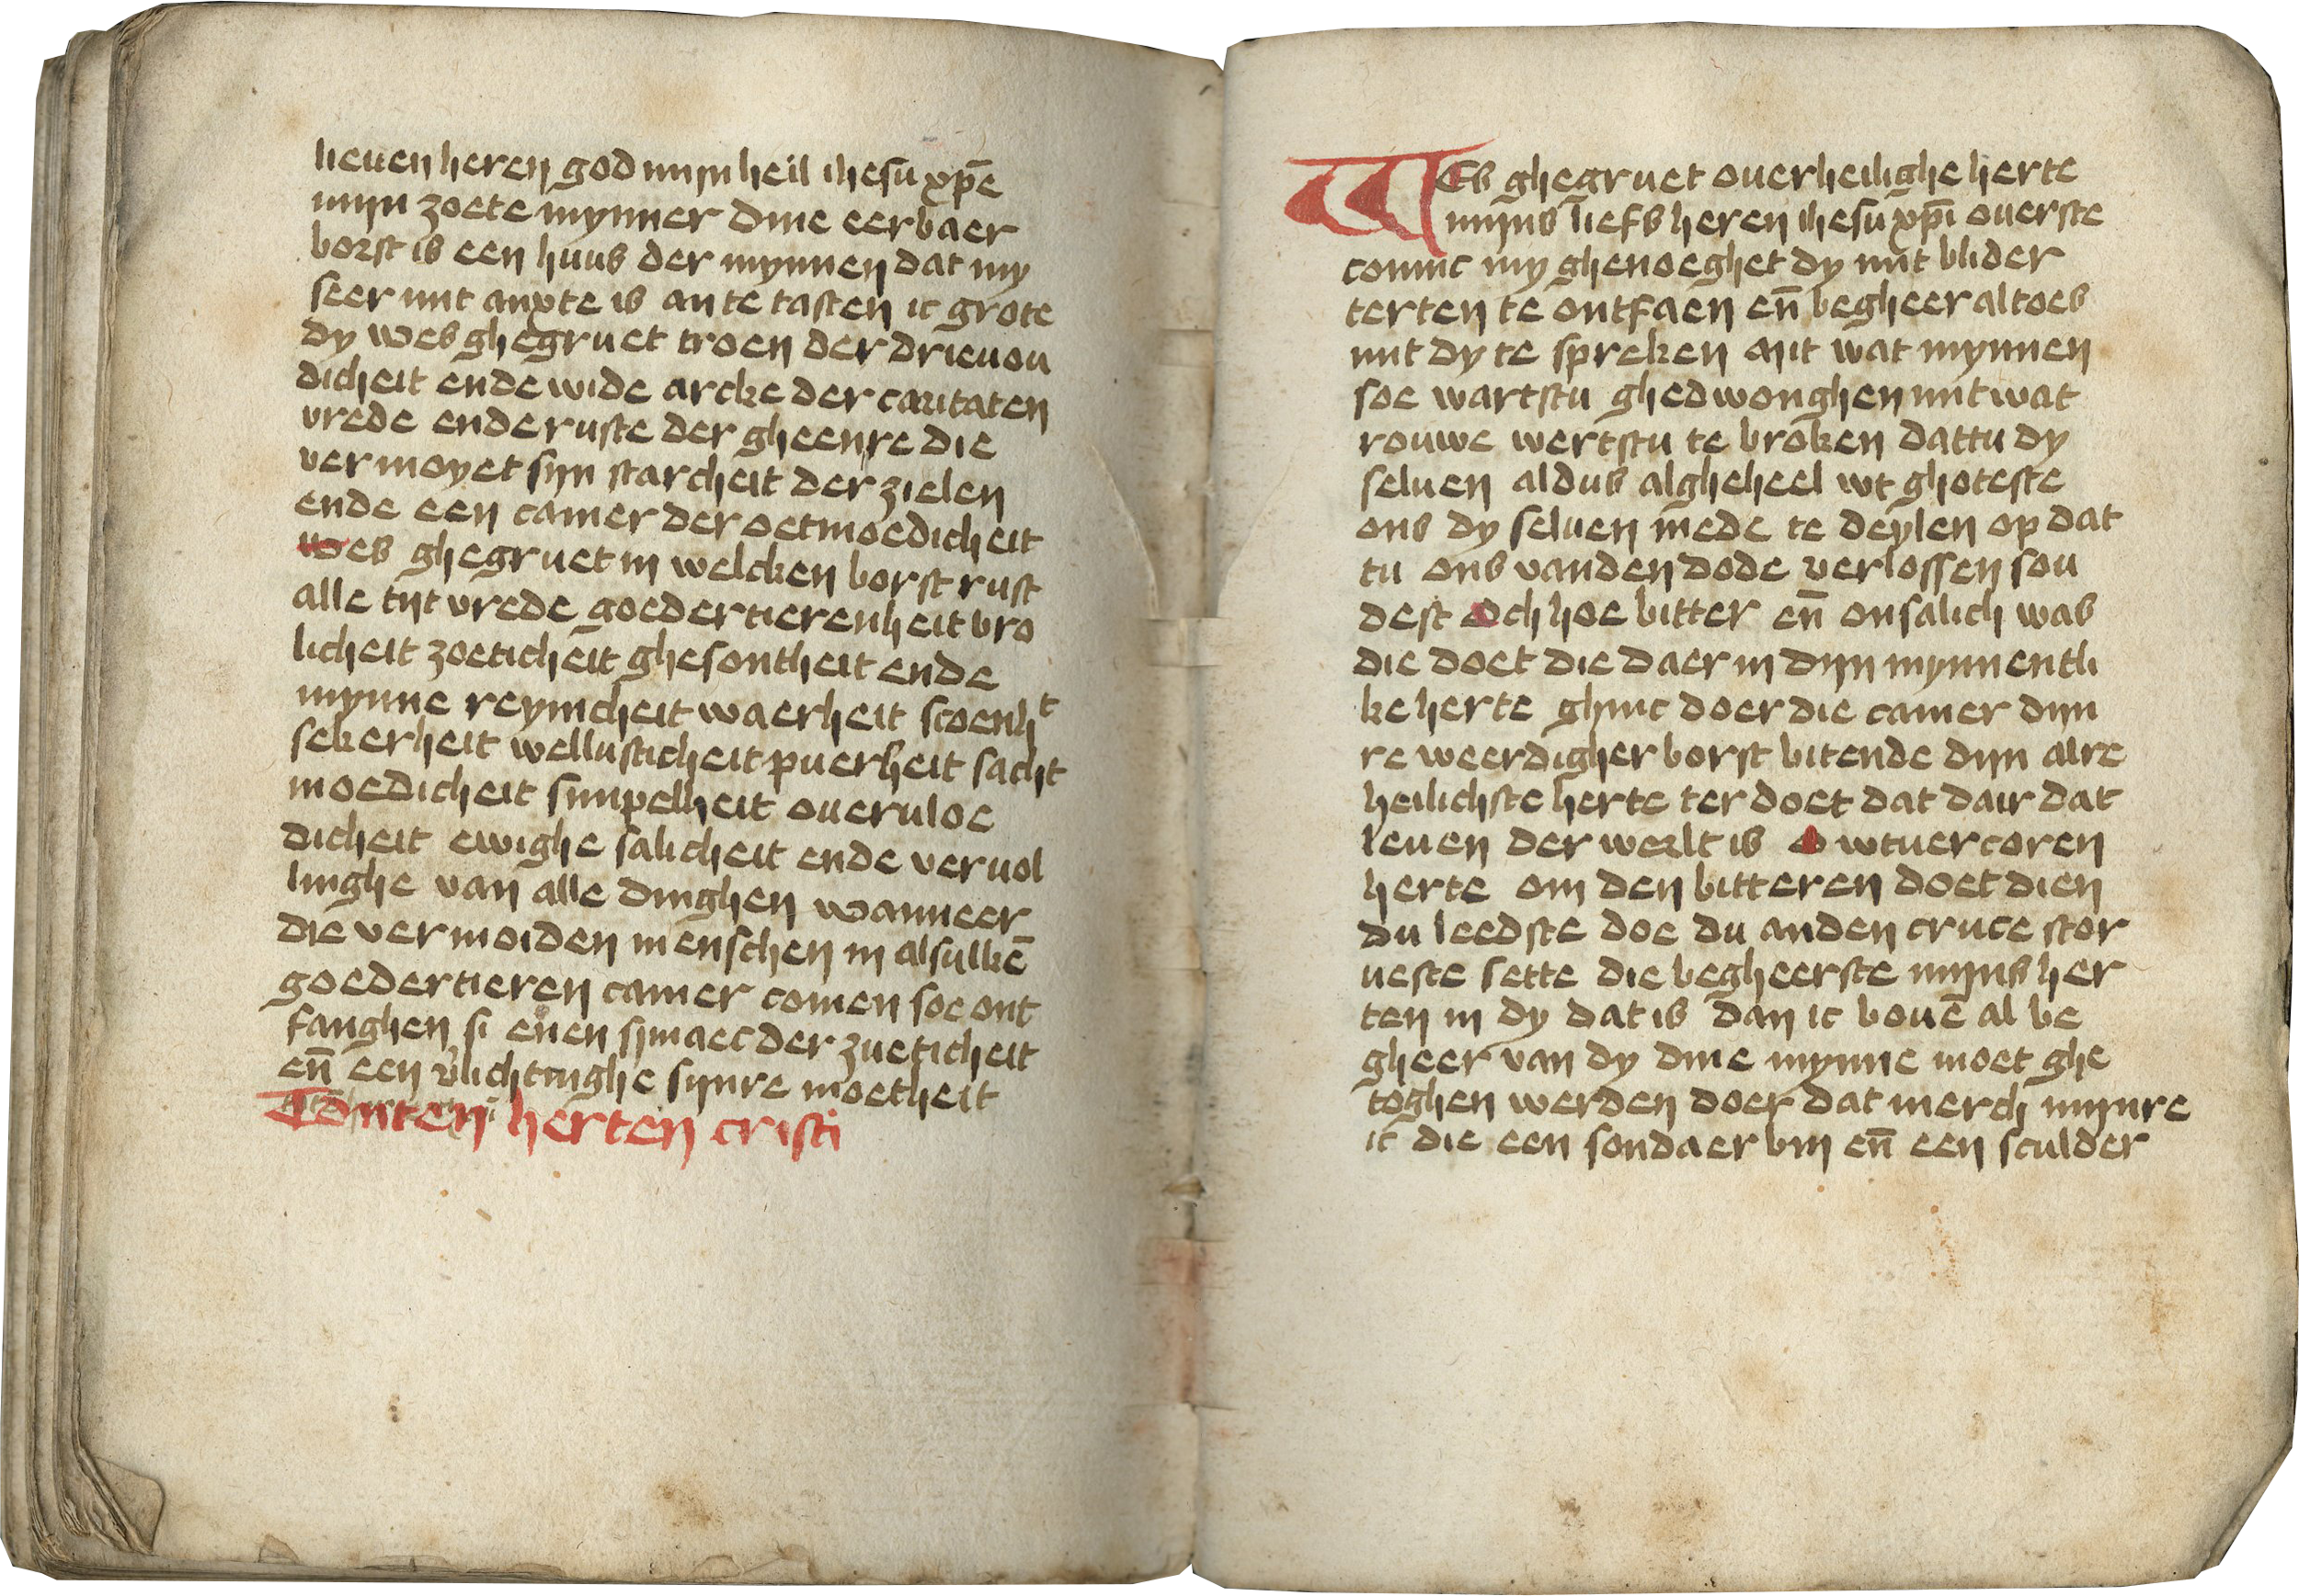 lieuen heren god mijn heil ihesu xp̄e
mijn zoete mynner dine eerbaer
borst is een huus der mynnen dat my
seer mit anxte is an te tasten ic grote
dy wes ghegruet troen der drieuou
dicheit ende wide arcke der caritaten
vrede ende ruste der gheenre die
vermoyet sijn starcheit der zielen
ende een camer der oetmoedicheit
wes ghegruet in welcken borst rust
alle tijt vrede goedertierenheit vro
licheit zoeticheit ghesontheit ende
mynne reynicheit waerheit scoenhᵗ
sekerheit wellusticheit puerheit sacht
moedicheit simpelheit oueruloe
dicheit ewighe salicheit ende veruol
linghe van alle dinghen wanneer
die vermoiden menschen in alsulkē
goedertieren camer comen soe ont
fanghen si enen smaec der zueticheit
en̄ een v̓lichtinghe sijnre moetheit
Totten herten cristi
Wes ghegruet ouerheilighe herte
mijns liefs heren ihesu xp̄i ouerste
coninc my ghenoeghet dy mit blider
herten te ontfaen en̄ begheer altoes
mit dy te spreken mit wat mynnen
soe wartstu ghedwonghen mit wat
rouwe wertstu te broken dattu dy
seluen aldus algheheel wt ghoteste
ons dy seluen mede te deylen op dat
tu ons vanden dode verlossen sou
dest och hoe bitter en̄ onsalich was
die doet die daer in dijn mynnentli
ke herte ghinc doer die camer dijn
re weerdigher borst bitende dijn alre
heilichste herte ter doet dat dair dat
leuen der werlt is o wtuercoren
herte om den bitteren doet dien
du leedste doe du anden cruce stor
ueste sette die begheerste mijns her
ten in dy dat is dan ic bouē al be
gheer van dy dine mynne moet ghe
toghen werden doer dat merch mijnre
ic die een sondaer bin en̄ een sculder